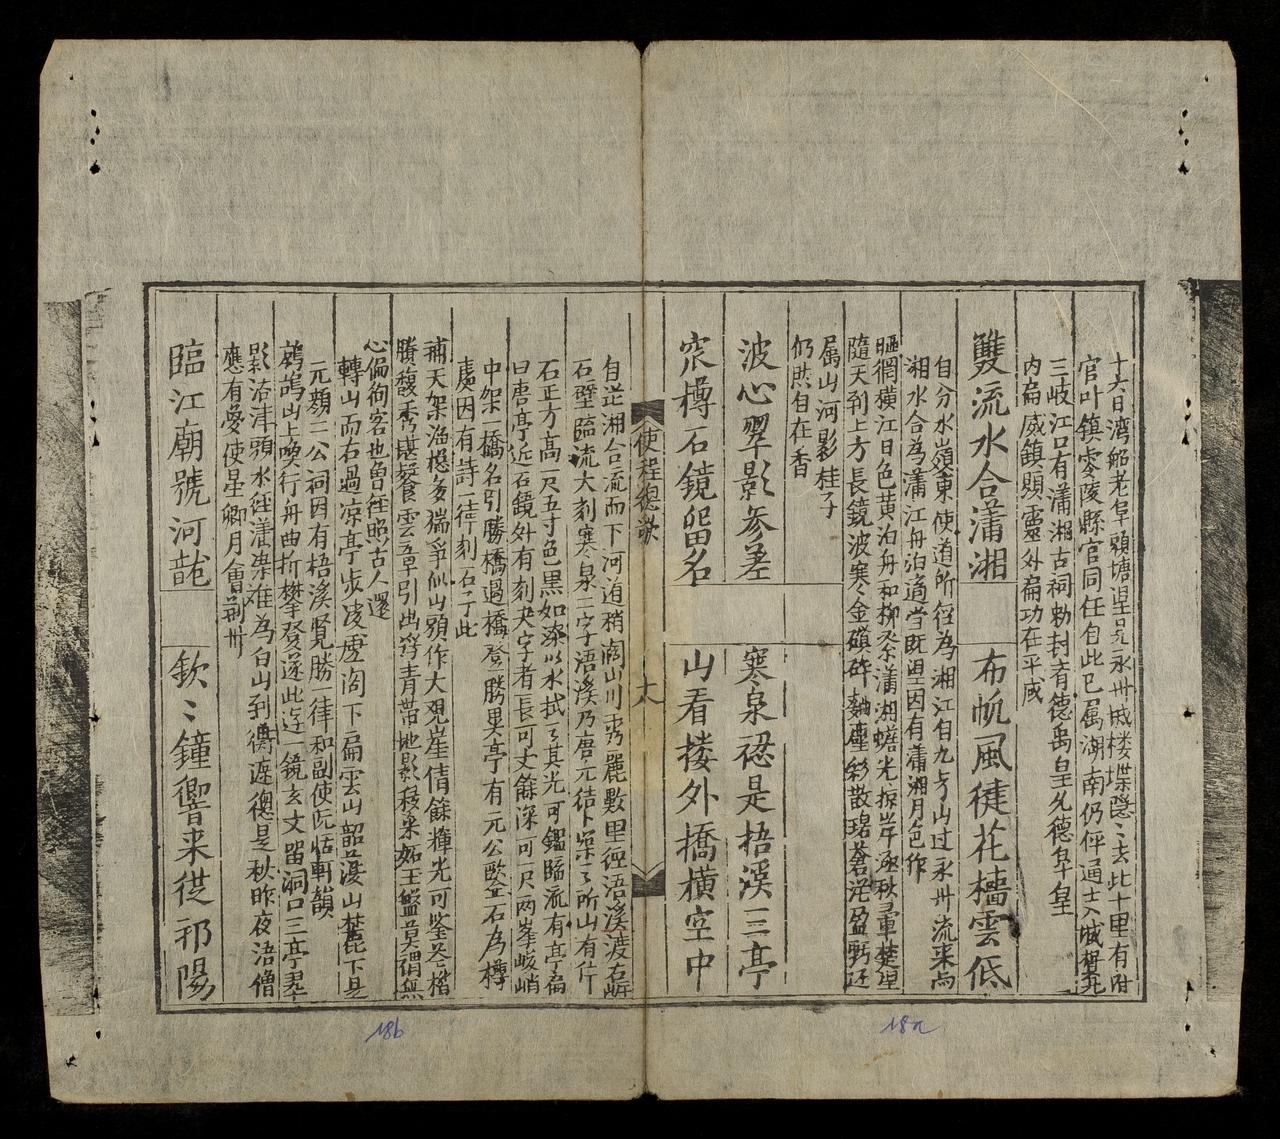 十六日湾船老阜頭塘望見永州城楼堞隐〻去此十里有附
官叶鎮零陵縣官同任自此已属湖南仍伴通士入城
三岐江口有瀟湘古祠勅封有德禹皇允德阜皇
内扁威鎮顕靈外扁功在平成
雙流水合瀟湘
布帆風徤花檣雲低
自分水嶺東使道所徑為湘江自九歩山过永州流来與
湘水合為瀟江舟泊適当既望因有瀟湘月色作
晒網横江日色黄泊舟和柳系瀟湘蟾光掠岸
随天到上方長鏡波寒金碎散蒼茫盈
属山河影桂子
仍然自在香
波心翠影参差
寒泉認是梧溪三亭
窊樽石鏡留名
山看楼外橋横空中
使程總歌
十八
自茫湘合流而下河道稍闊山川秀麗數里徑浯溪渡右岸
石壁臨流大刻寒泉二字浯溪乃唐元结卜築之所山有片
石正方高一尺五寸色黒如漆以水拭之其光可鑑臨流有亭扁
曰唐亭近石鏡外有刻夬字者長可丈餘深可一尺两峯峻峭
中架一橋名引勝橋過橋登一勝異亭有元公歐全石為樽
處因有詩一律刻石于此
補天架漁穏多猫爭似山頭作大覌崖倩餘輝光可鉴
勝馥秀堪餐雲五草引出符青帶地影移来妬玉盤莫謂無
心偏徇客也曽徃照古人還
轉山而右過凉亭歩凌虚阁下扁雲山韶濩山麓下是
元顔二公祠因有梧溪覧勝一律和副使阮恬軒韻
鹧鸪山上喚行舟曲折攀登遂此逰一鏡玄文留洞口三亭翠
影沽津頭水徑瀟染難為白山到衡邉總是秋昨夜浯僧
應有夢使星卿月會荊州
臨江廟號河龍
欽〻鐘響来從祁陽
18b
18a